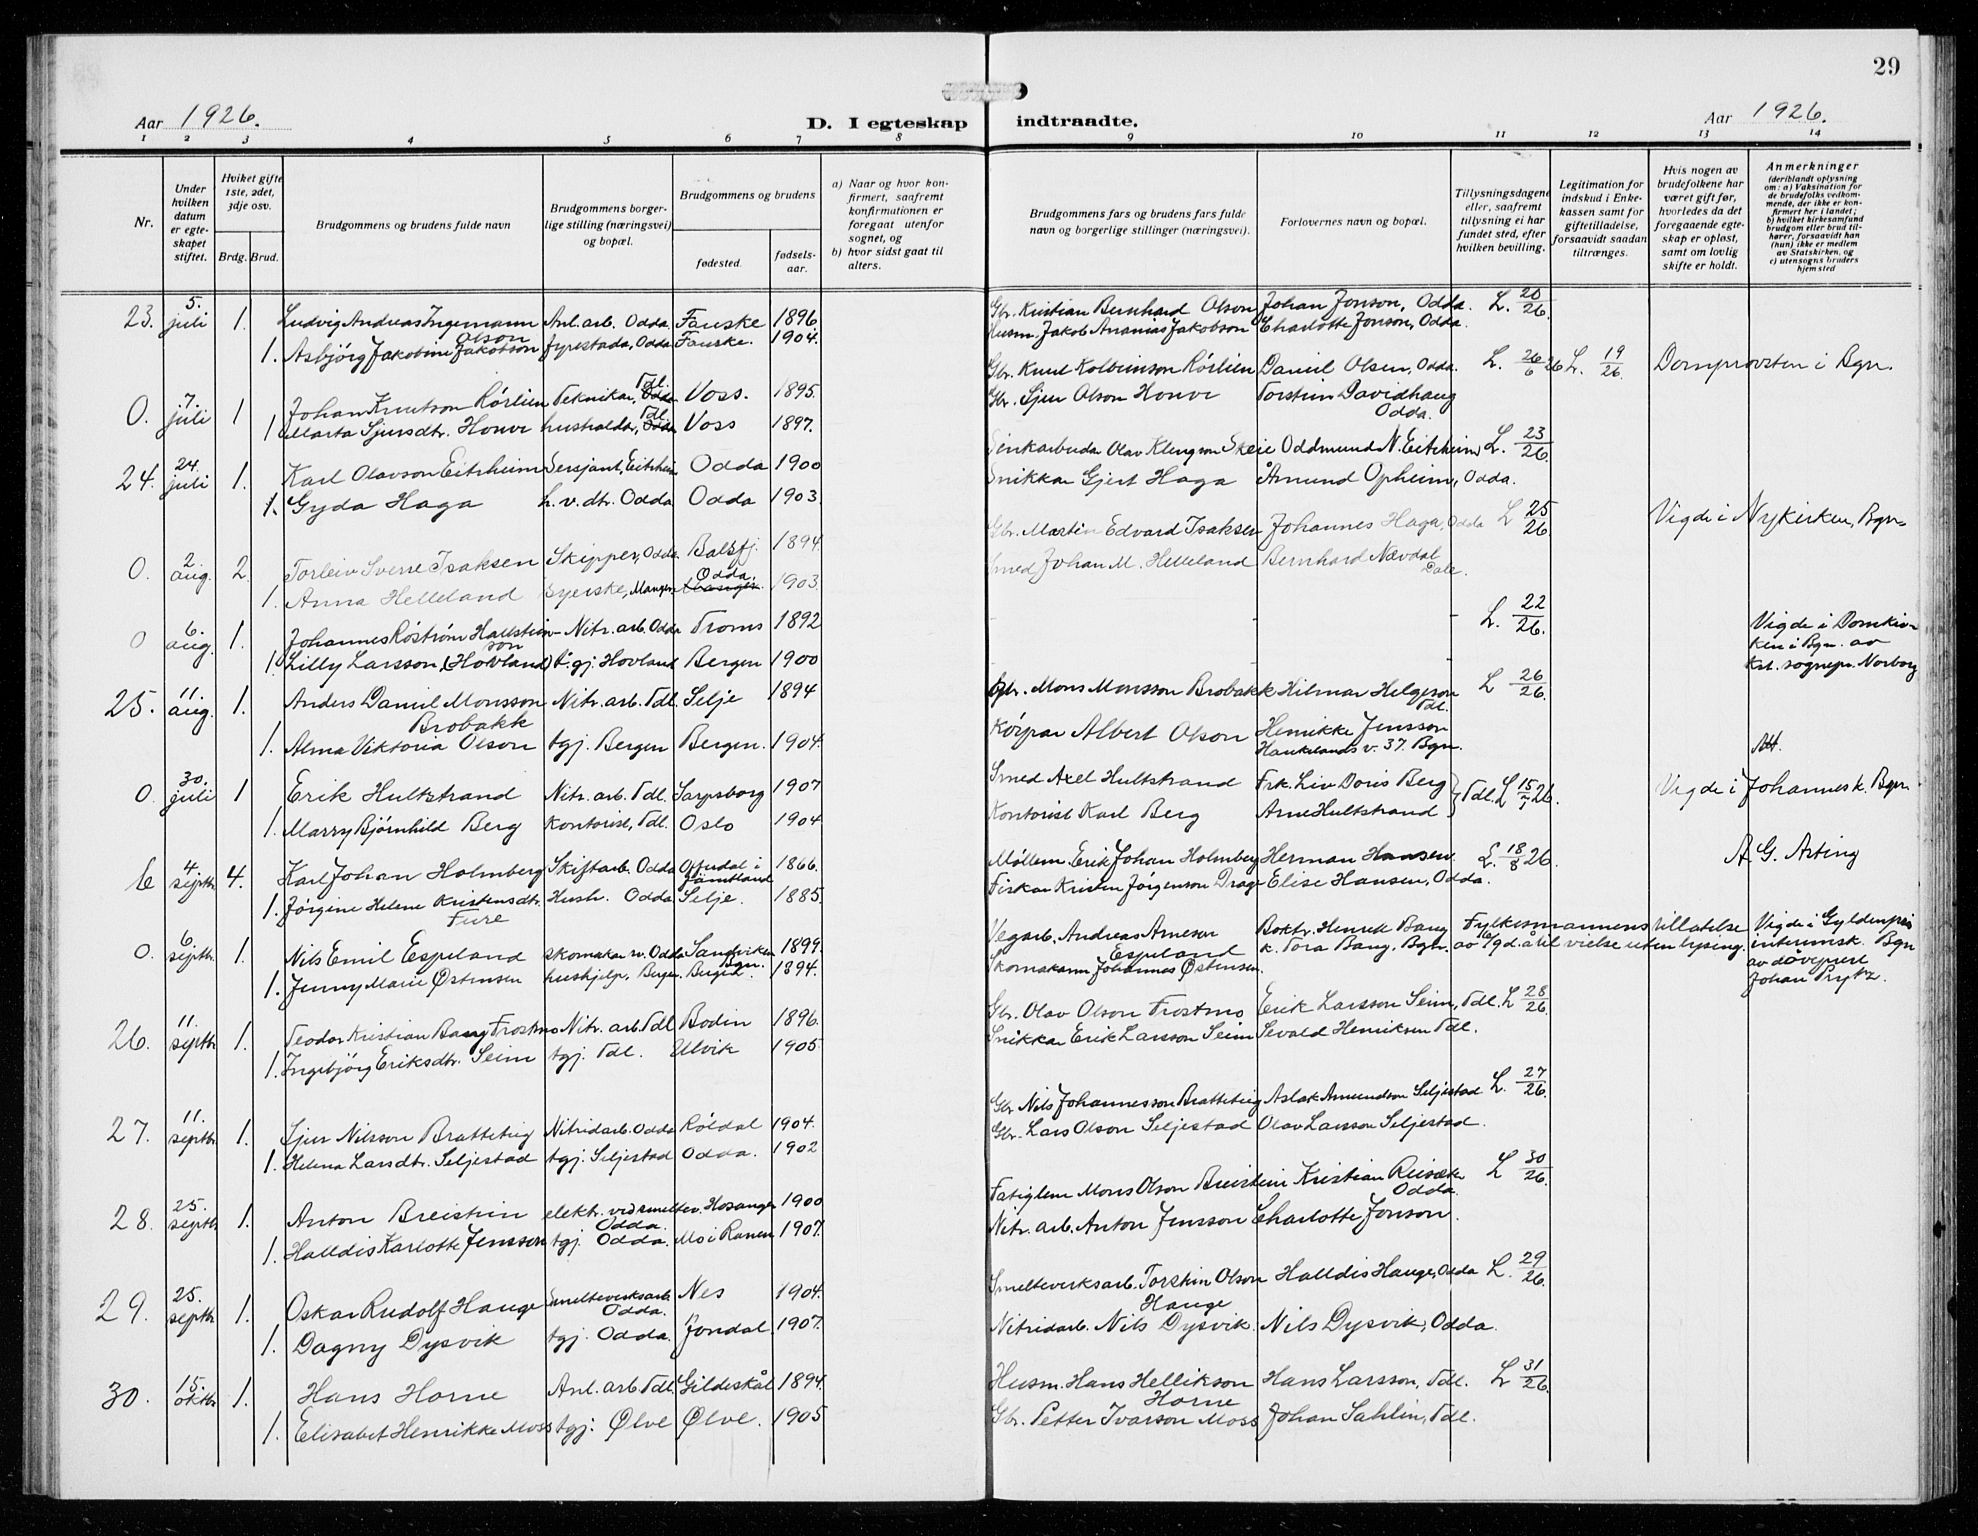 29
Aar 1926.
D. I egteskap indtraadte.
Aar 1926.
1 2 3 4 5 6 7 8 9 10 11 12 13 14
Nr.
Under hvilken datum er egteskapet stiftet.
Hviket gifte 1ste, 2det, 3dje osv.
Brdg. Brud.
Brudgommens og brudens fulde navn
Brudgommens borgerlige stilling (næringsvei) og bopæl.
Brudgommens og brudens
fødested.
fødselsaar.
a) Naar og hvor konfirmert, saafremt konfirmationen er foregaat utenfor sognet, og
b) hvor sidst gaat til alters.
Brudgommens fars og brudens fars fulde navn og borgerlige stillinger (næringsvei).
Forlovernes navn og bopæl.
Tillysningsdagene eller, saafremt tillysning ei har fundet sted, efter hvilken bevilling.
Legitimation for indskud i Enkekassen samt for giftetilladelse, forsaavidt saadan tiltrænges.
Hvis nogen av brudefolkene har været gift før, hvorledes da det foregaaende egteskap er opløst, samt om lovlig skifte er holdt.
Anmerkninger (deriblandt oplysning om: a) Vaksination for de brudefolks vedkommende, der ikke er konfirmert her i landet; b) hvilket kirkesamfund brudgom eller brud tilhører, forsaavidt han (hun) ikke er medlem av Statskirken, og c) utensogns bruders hjemsted
23. 5. juli 1. Ludvig Andreas Ingemann Olson Anl. arb. Odda Fauske 1896 Gbr. Kristian Bernhard Olson Johan Jonson, Odda. L. 20/26.
1. Asbjörg Jakobine Jakobson Fyrestada, Odda Fauske. 1904. Husm. Jakob Ananias Jakobson Charlotte Jonson, Odda.
0. 7. juli 1 Johan Knutson Rørlien Teknikar, Tdl. Voss. 1895. Gbr. Knut Kolbeinson Rørlien Daniel Olsen, Odda. L. 26/6 26 L. 19/26. Domprovsten i Bgn.
1 Marta Sjursdtr. Honve husholdr, Tdl. Voss 1897. Gbr. Sjur Olson Honve Torstein Davidhaug Odda.
24. 24. juli 1. Karl Olavson Eitrheim Sersjant, Eitrheim Odda 1900 Sinkarbeider Olav Klengson Skeie Oddmund N. Eitrheim L. 23/26.
1. Gyda Haga h.v.dtr. Odda Odda 1903. Snikkar Gjert Haga Åmund Opheim, Odda.
0. 2. aug. 2. Torleiv Sverre Isaksen Skipper, Odda Balsfj. 1894. Gbr. Martin Edvard Isaksen Johannes Haga, Odda L 25/26. Vigde i Nykirken, Bgn.
1. Anna Helleland Syerske, Manger Odda. 1903. Smed Johan M. Helleland Bernhard Nævdal Dale.
0 6. aug. 1. Johannes Röström Hallsteinson Nitr. arb. Odda Troms 1892 - - - L. 22/26. Vigde i Domkirken i Bgn. av kst. sognepr. Norborg
1. Lilly Larsson (Hovland) t.gj. Hovland Bergen 1900 - - -
25. 11. aug. 1. Anders Daniel Monsson Brobakk Nitr. arb. Tdl. Selje 1894 Gbr. Mons Monsson Brobakk Hilmar Helgeson Tdl. L 26/26.
1. Alma Viktoria Olson tgj. Bergen Bergen. 1904. Körpar Albert Olson Henrikke Jensson Haukelands v. 37. Bgn. Att.
0. 30. juli 1 Erik Hultstrand Nitr. arb. Tdl. Sarpsborg 1907 Smed Axel Hultstrand Frk. Liv Doris Berg } Tdl. L 15/7 26. Vigde i Johannesk. Bgn.
1. Marry Bjørnhild Berg Kontorist, Tdl. Oslo 1904 Kontorist Karl Berg Arne Hultstrand
4 septbr 4. Karl Johan Holmberg Skiftarb. Odda Offerdal i Jämtland 1866. Møllem. Erik Johan Holmberg Herman Hansen L. 18/8 26. A G. Asting
1. Jørgine Helene Kristensdtr. Fure Hush. Odda Selje. 1885. Fiskar Kristen Jørgenson Drage Elise Hansen, Odda.
0. 6. septbr. 1. Nils Emil Espeland skomakar v. Odda Sandviken Bgn. 1899. Vegarb. Andreas Arneson Espeland Boktr. Henrik Bang Fylkesmannens tillatelse Vigde i Gyldenpris
1. Jenny Marie Østensen hushjelp, Bergen. Bergen. 1894. Skomakarm Johannes Østensen. k. Tora Bang, Bgn. av 16/9 d.å til vielse uten lysing. interimsk. Bgn av døvepræst Johan Prytz.
26. 11. septbr. 1. Teodor Kristian Bang Frostmo Nitr. arb. Tdl Bodin 1896. Gbr. Olav Olson Frostmo Erik Larsson Seim, Tdl. L 28/26.
1. Ingebjörg Eriksdtr. Seim tgj. Tdl. Ulvik 1905. Snikkar Erik Larsson Seim Sevald Henriksen Tdl.
27. 11. septbr. 1. Sjur Nilsson Bratteteig Nitridarb. Odda Röldal 1904. Gbr. Nils Johannesson Bratteteig Aslak Amundson Seljestad L. 27/26.
1. Helena Larsdtr. Seljestad tgj. Seljestad Odda. 1902 Gbr. Lars Olson Seljestad Olav Larsson Seljestad.
28. 25. septbr 1. Anton Breistein elektr. ved smeltev. Odda. Hosanger 1900 Fatiglem Mons Olson Breistein Kristian Reisæter Odda. L 30/26.
1. Halldis Karlotte Jensson tgj. Odda. Mo i Ranen 1907. Nitr. arb. Anton Jensson Charlotte Jonson.
29. 25. septbr 1. Oskar Rudolf Hauge Smelteverksarb. Odda. Nes 1904. Smelteverksarb. Torstein Olson Hauge Halldis Hauge, Odda L. 29/26.
1. Dagny Dysvik tgj. Odda. Jondal. 1907. Nitridarb. Nils Dysvik. Nils Dysvik, Odda.
30. 15. oktbr 1. Hans Horne Anl. arb. Tdl. Gildeskål 1894. Husm. Hans Hellikson Horne Hans Larsson, Tdl. L 31/26.
1. Elisabet Henrikke Moss tgj. Ølve Ølve. 1905 Gbr. Petter Ivarson Moss Johan Sahlin, Tdl.